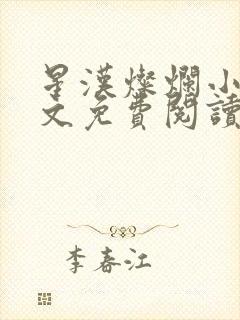 星漢燦爛小
文免費閱讀
李春江